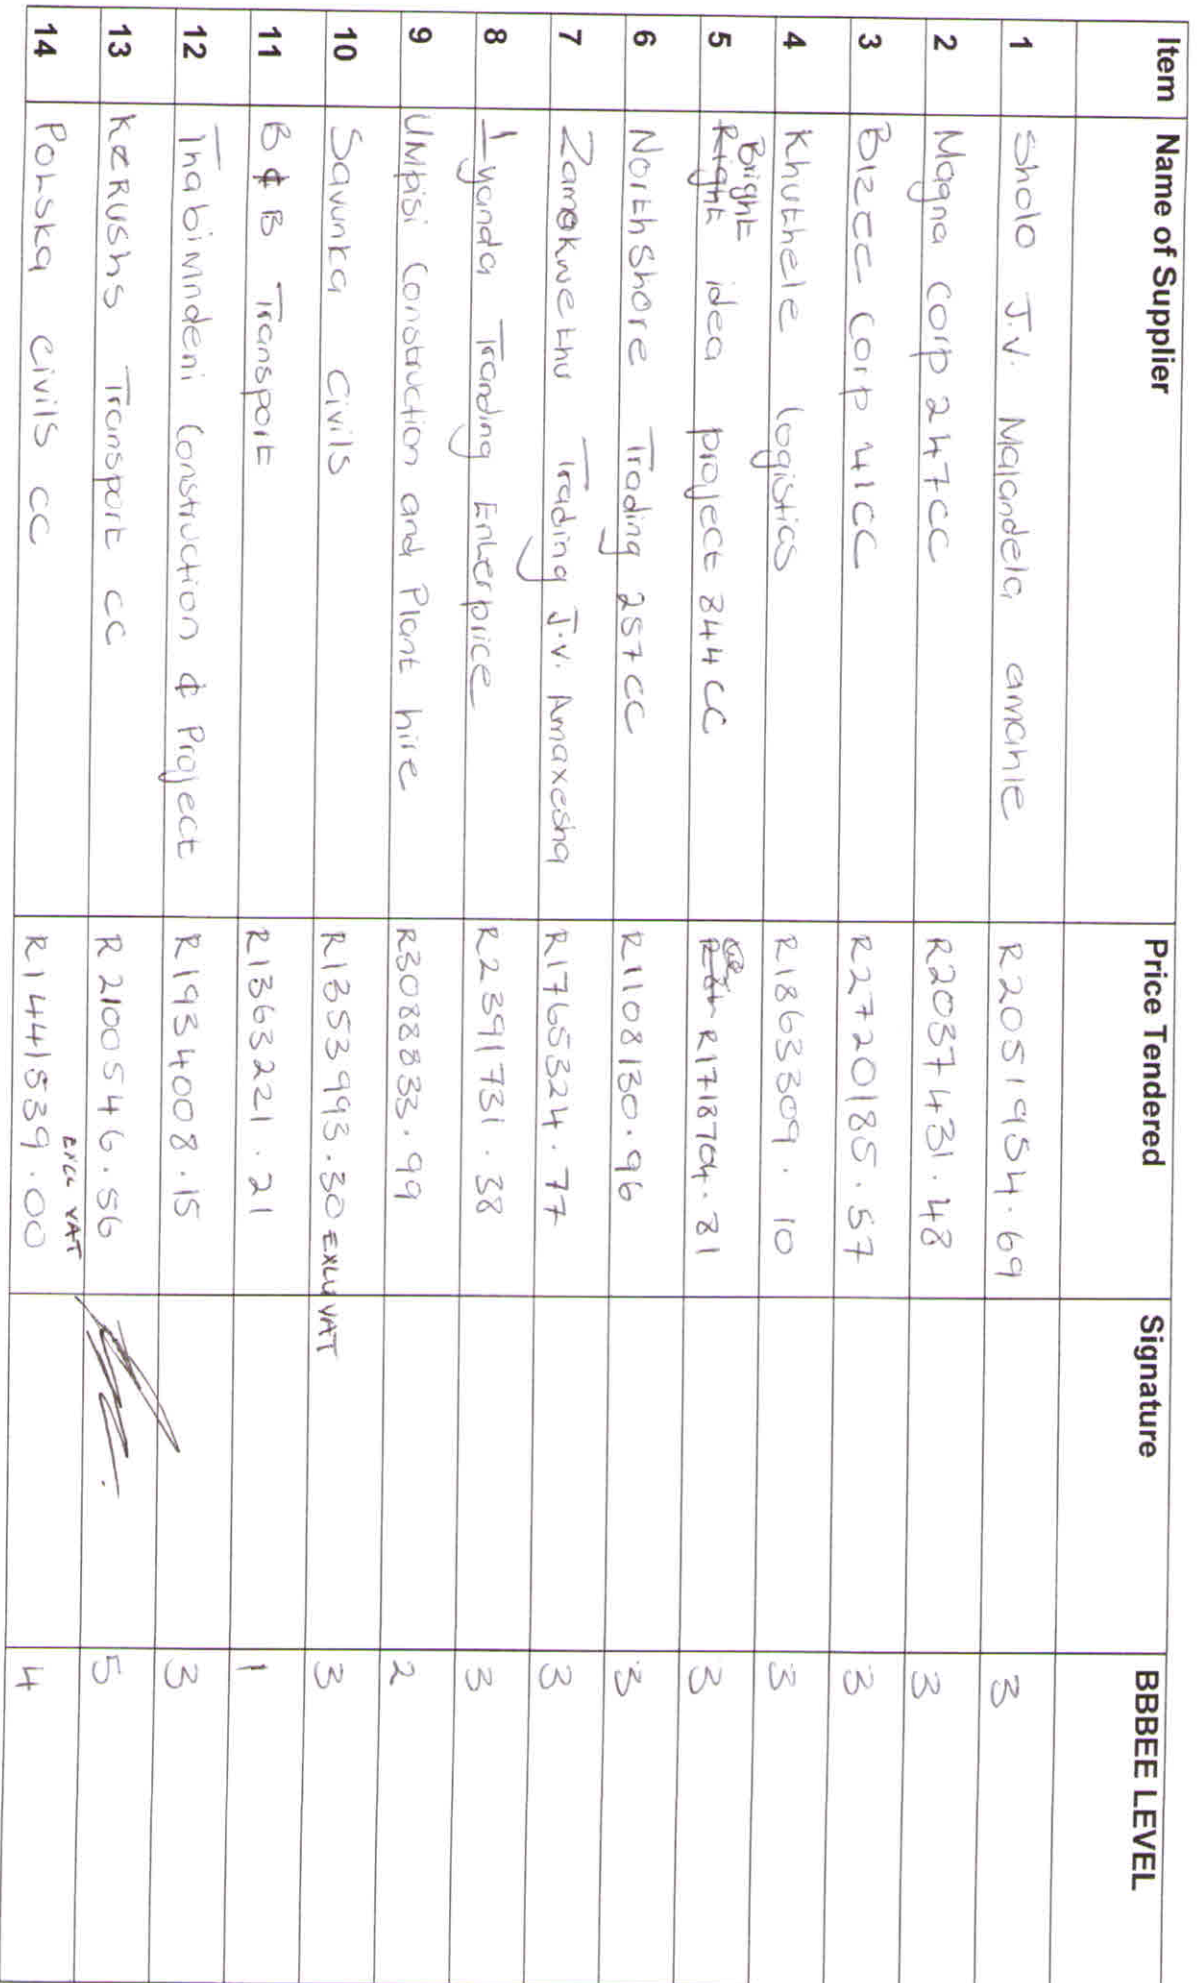 Item Name of Supplier Price Tendered Signature BBBEE LEVEL
1 Sholo J.V. Majandela amahle R2051954.69 3
2 Magna Corp 247CC R2037431.48 3
3 Bizec Corp 41CC R2720185.57 3
4 Khuthele Logistics R1863309.10 3
Bright
5 Right idea project 344CC R1718704.81 3
6 NorthShore Trading 257CC R1108130.96 3
7 Zamokwethu Trading J.V. Amaxesha R1765324.77 3
8 Iyanda Tranding Enterprice R2391731.38 3
9 UMpisi Construction and Plant hire R3088833.99 2
10 Savunka Civils R1353993.30 EXLU VAT 3
11 B & B Transport R1363221.21 1
12 Thabimndeni Construction & Project R1934008.15 3
13 Kerushs Transport CC R2100546.56 5
EXCL VAT
14 Polska Civils CC R1441539.00 4